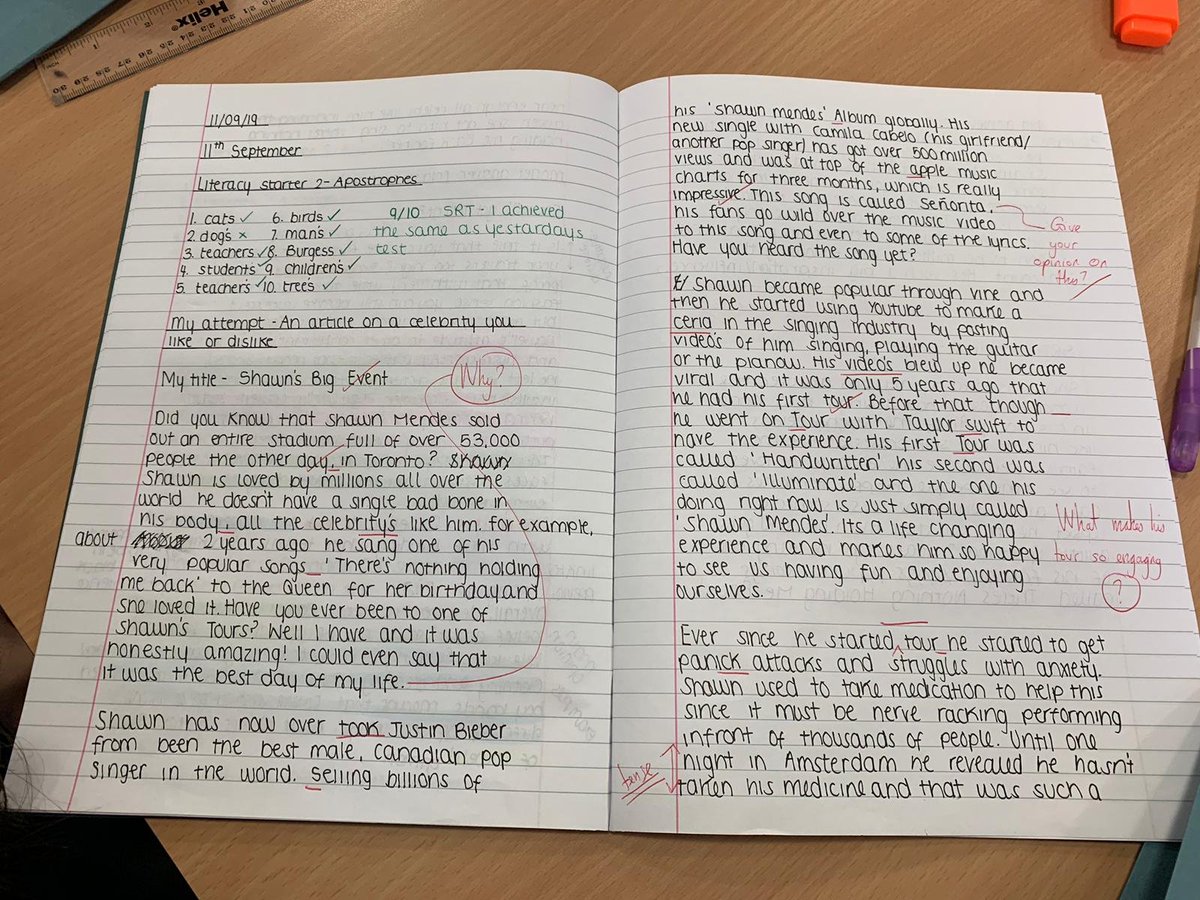 Helix
11/09/19
11th September
Literacy starter 2 - Apostrophes
1. cats ✓ 6. birds ✓
2. dog's × 7. man's ✓
3. teachers ✓ 8. Burgess ✓
4. students ✓ 9. Children's ✓
5. teacher's ✓ 10. trees ✓
9/10 SRT - I achieved
the same as yestardays
test
My attempt - An article on a celebrity you
like or dislike
My title - Shawn's Big Event
Why?
Did you know that Shawn Mendes sold
out an entire stadium full of over 53,000
people the other day, in Toronto? Shawn
Shawn is loved by millions all over the
world he doesn't have a single bad bone in
his body, all the celebrity's like him. for example,
about 2 years ago he sang one of his
very popular songs 'There's nothing holding
me back' to the Queen for her birthday and
she loved it. Have you ever been to one of
Shawn's Tours? Well I have and it was
honestly amazing! I could even say that
it was the best day of my life.
Shawn has now over took Justin Bieber
from been the best male, Canadian pop
singer in the world. Selling billions of
his 'Shawn mendes' Album globally. His
new single with Camila Cabelo (his girlfriend/
another pop singer) has got over 500 million
views and was at top of the apple music
charts for three months, which is really
impressive. This song is called Señorita,
his fans go wild over the music video
to this song and even to some of the lyrics.
Have you heard the song yet?
Give
your
opinion on
this?
// Shawn became popular through vine and
then he started using Youtube to make a
ceria in the singing industry by posting
video's of him singing, playing the guitar
or the pianow. His video's blew up he became
viral and it was only 5 years ago that
he had his first tour. Before that though
he went on Tour with Taylor swift to
have the experience. His first Tour was
called 'Handwritten' his second was
called 'Illuminate' and the one his
doing right now is just simply called
'Shawn Mendes'. Its a life changing
experience and makes him so happy
to see us having fun and enjoying
ourselves.
What makes his
tour so engaging
?
Ever since he started ^ tour he started to get
panick attacks and struggles with anxiety.
Shawn used to take medication to help this
since it must be nerve racking performing
infront of thousands of people. Until one
night in Amsterdam he revealed he hasn't
taken his medicine and that was such a
tense